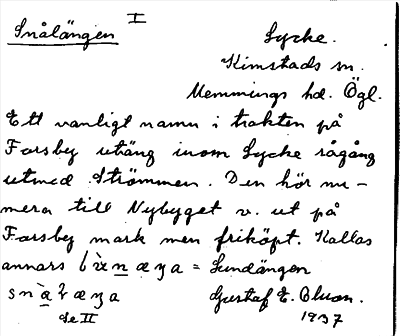 Snålängen I
Lycke.
Kimstads sn.
Memmings hd. Ögl.
Ett vanligt namn i trakten på
Farsby utäng inom Lycke rågång
utmed Strömmen. Den hör nu-
mera till Nybyget v. ut på
Farsby mark men friköpt. Kallas
annars = Lundängen
Gustaf E. Bluon.
Se II
1937